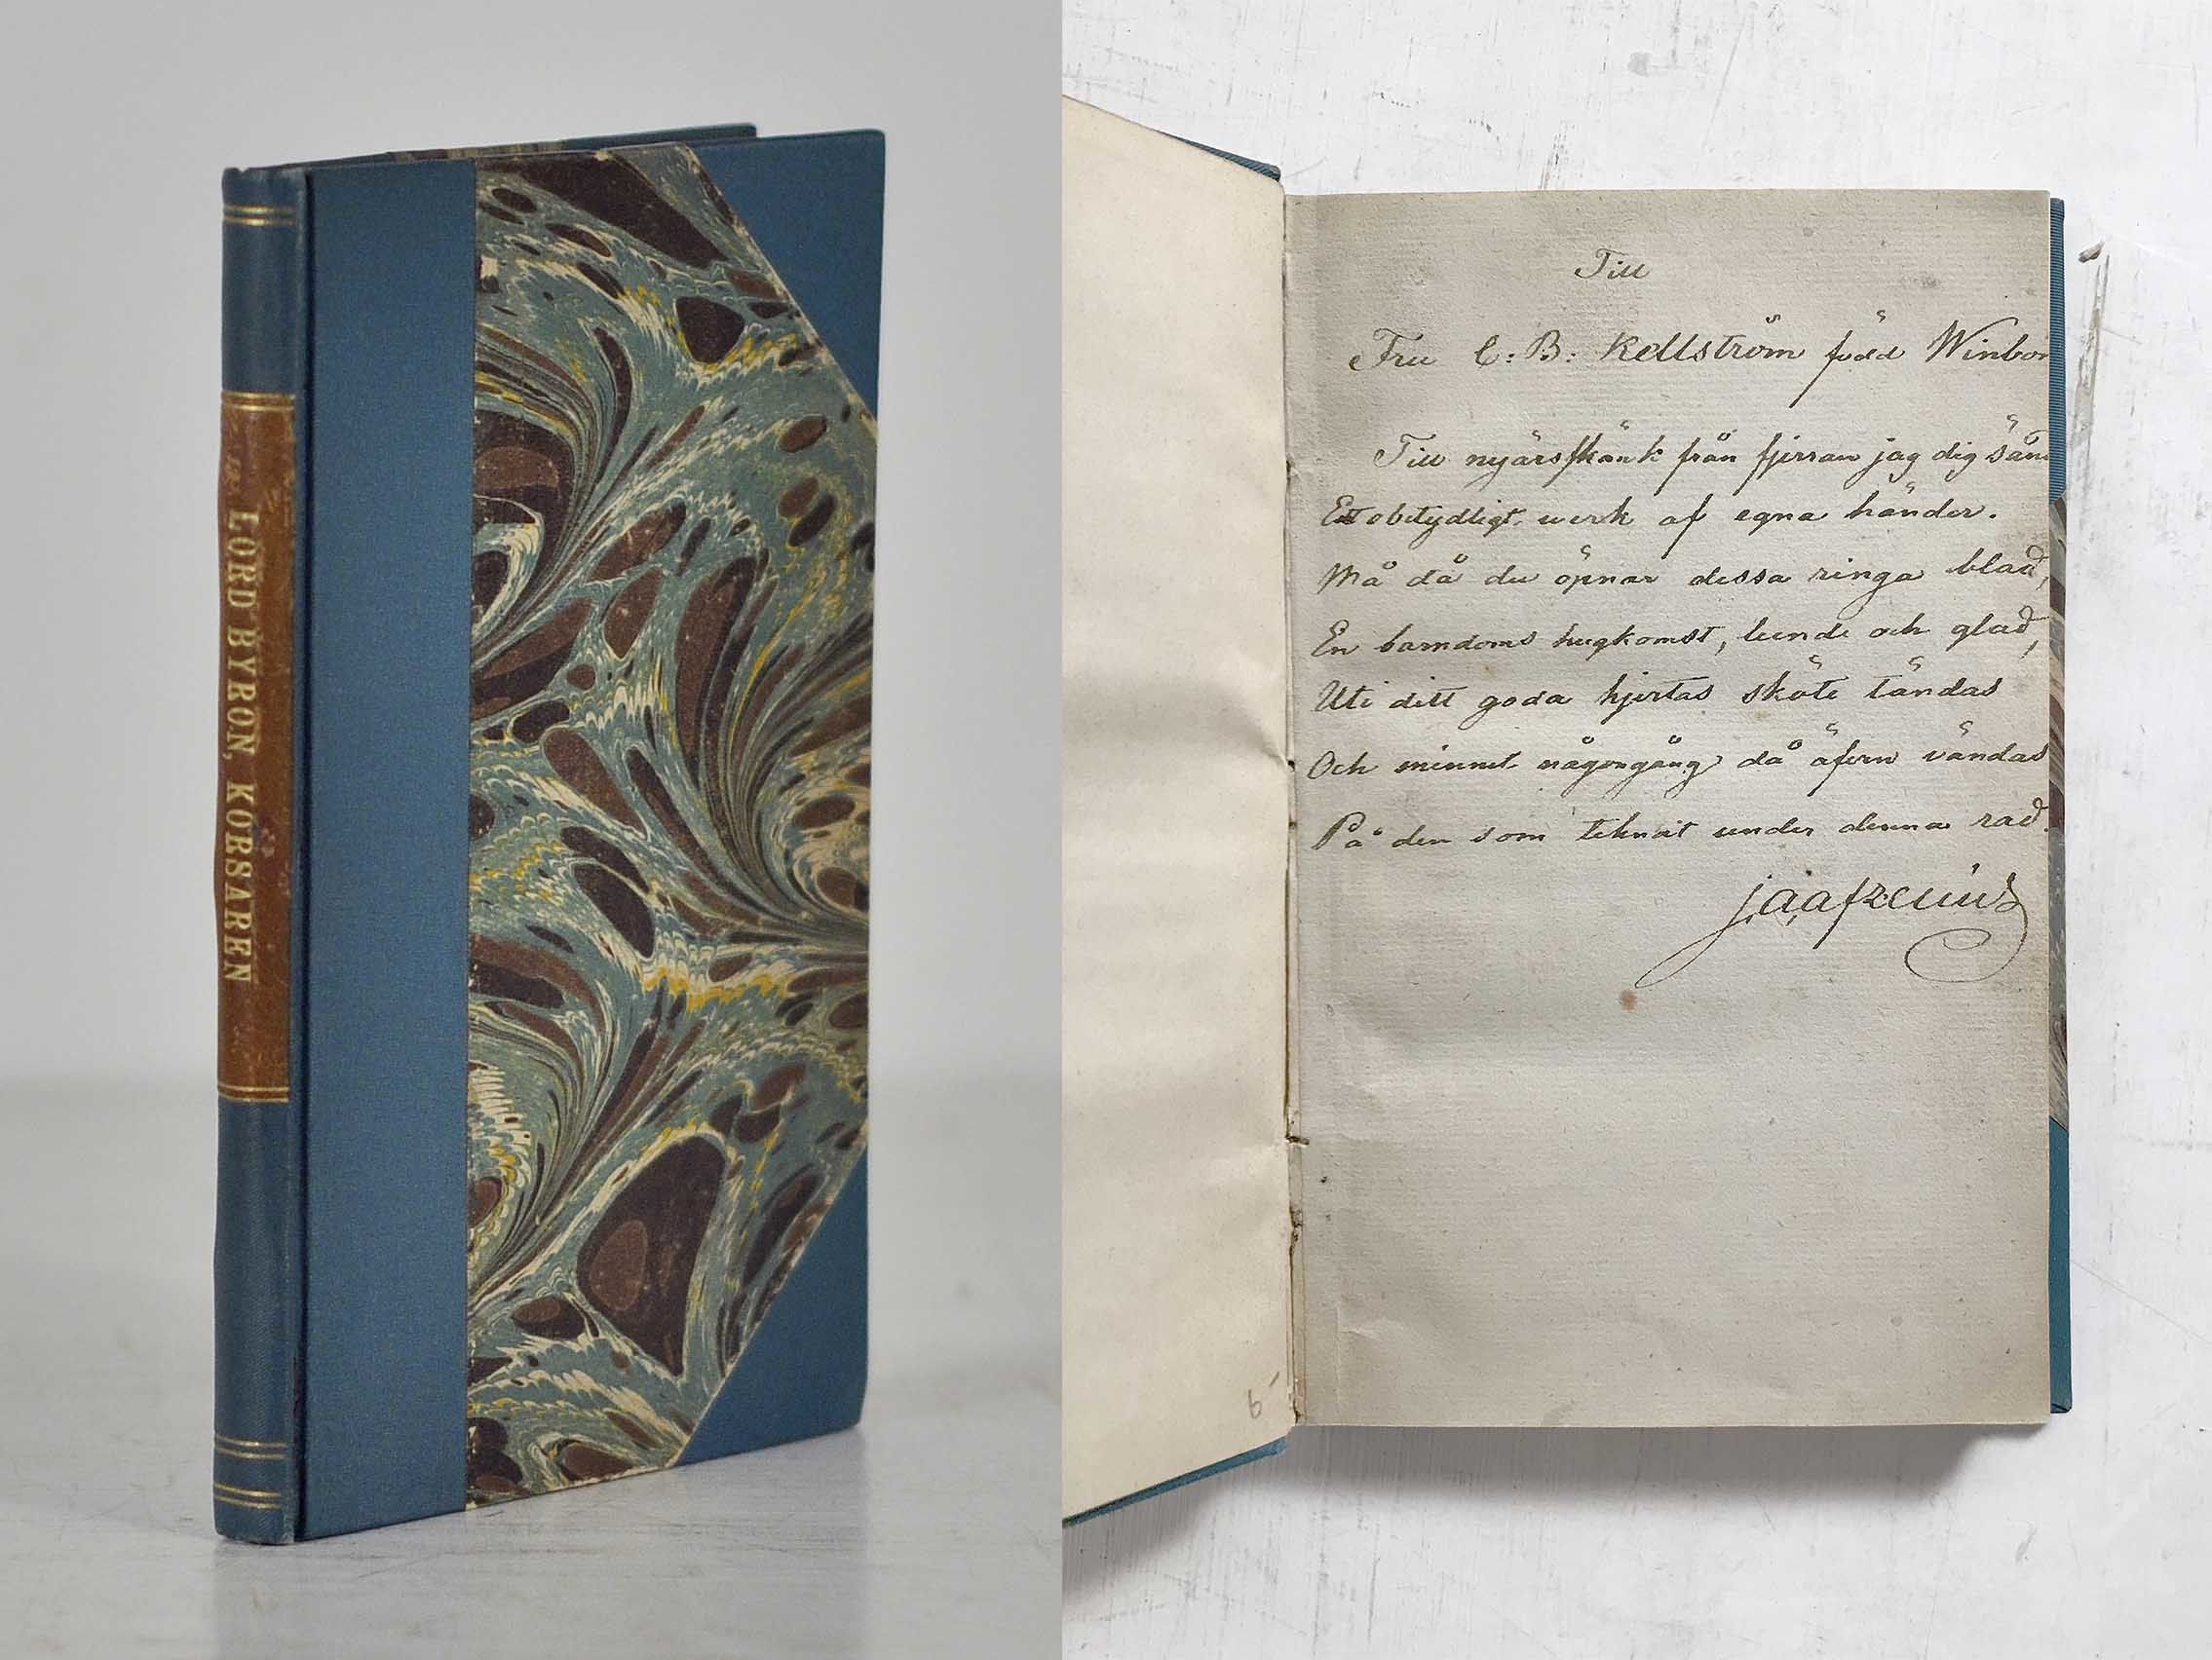 LORD BYRON, KORSAREN
Till
Fru C: B: Kellström född Winbor
Till nyårsskänk från fjerran jag dig sän
Ett obetydligt werk af egna händer.
Må då du öpnar dessa ringa blad,
En barndoms hugkomst, leende och glad,
Uti ditt goda hjertas sköte tändas
Och minnet någongång då äfven vändas
På den som teknat under denna rad.
6-